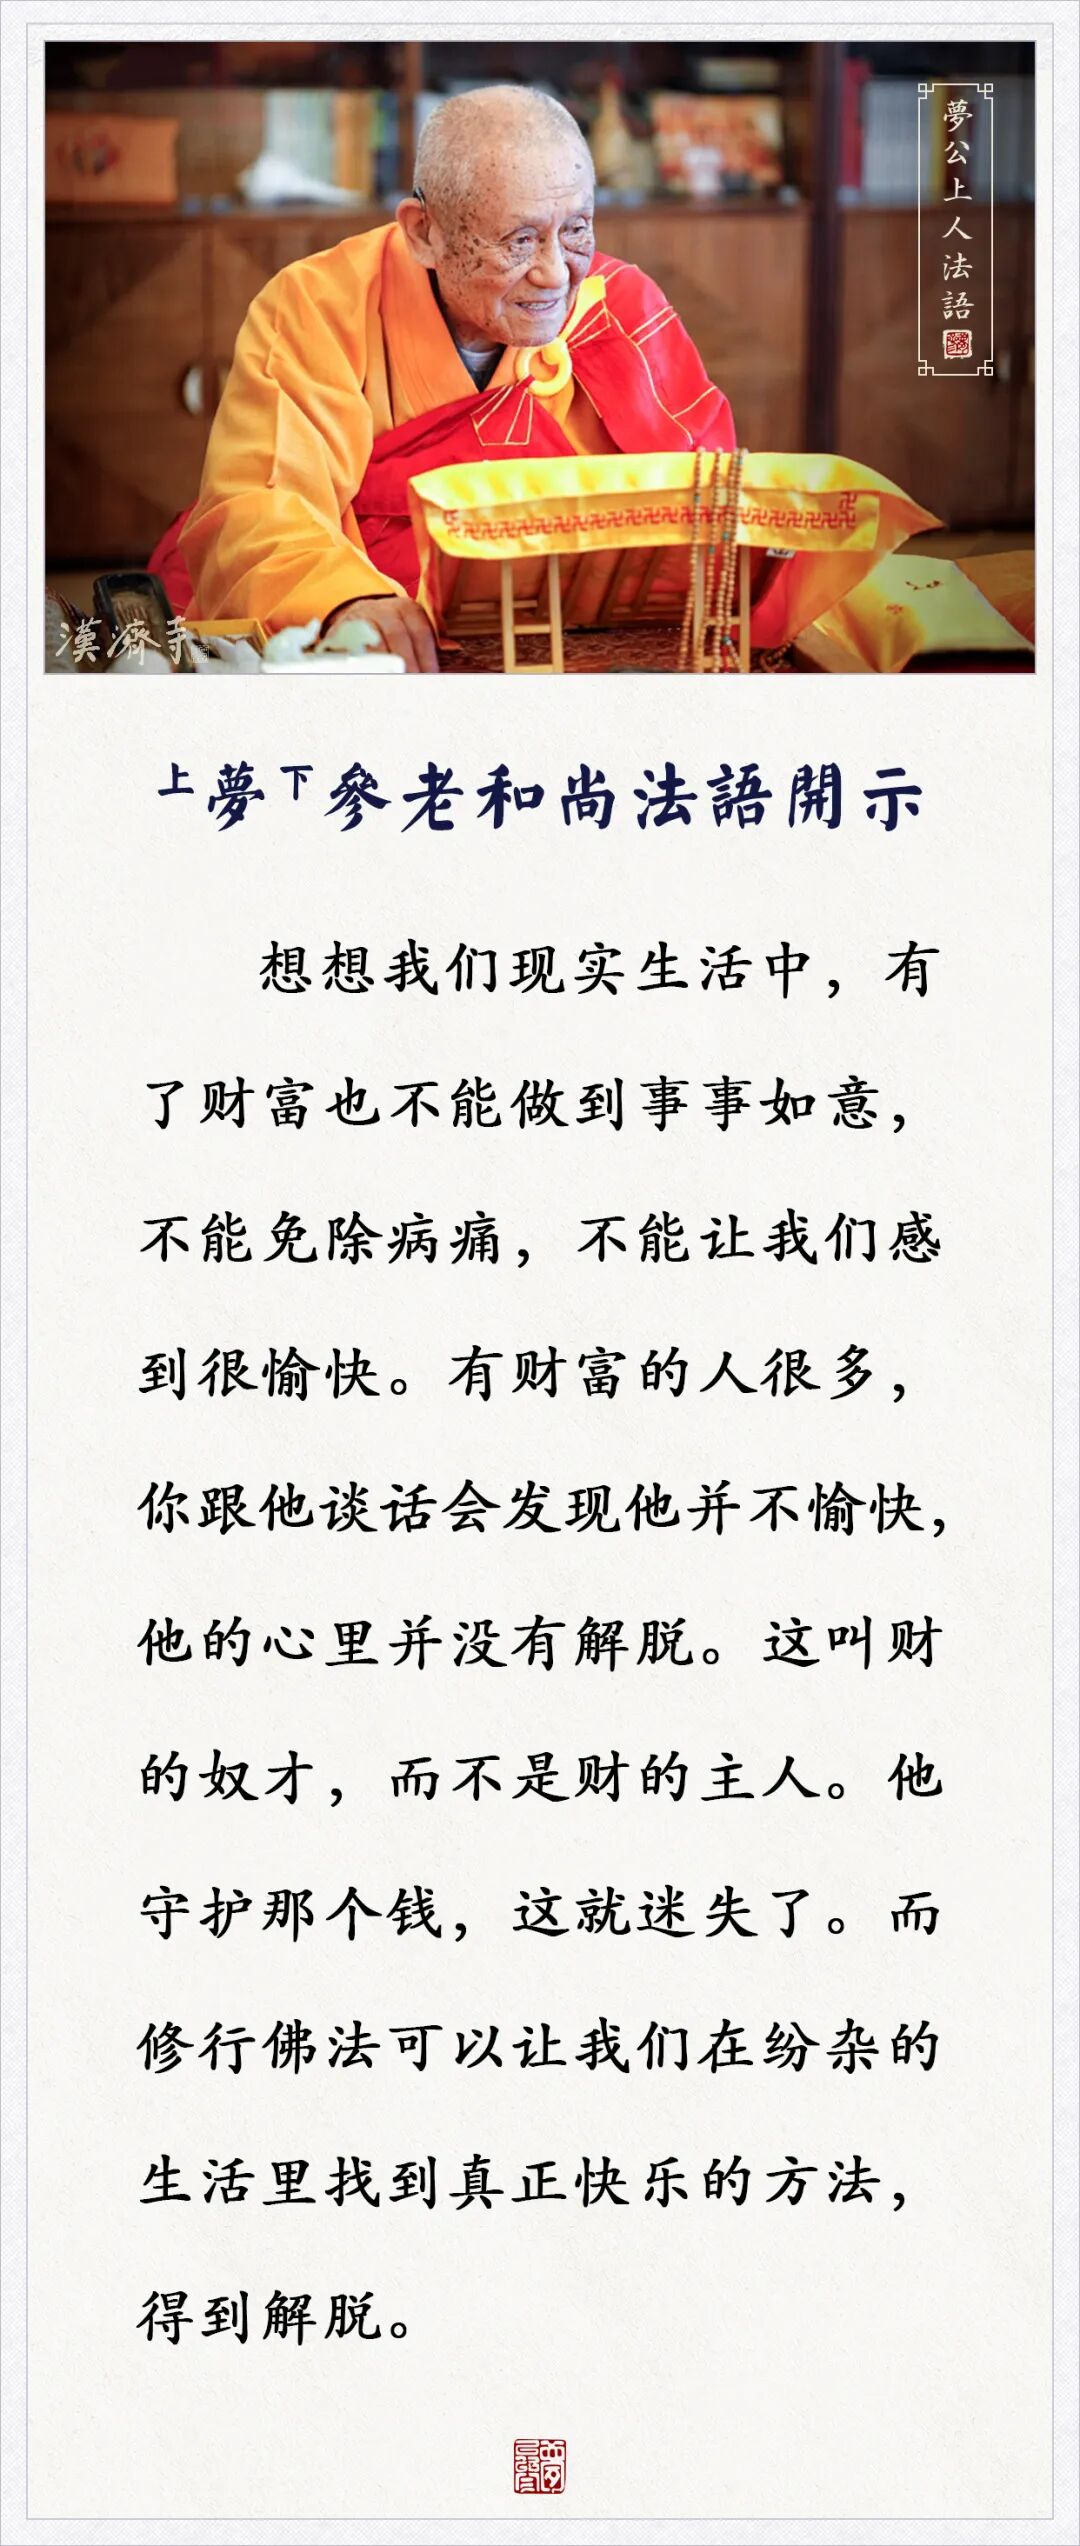 夢公上人法語
漢濟寺
上夢下參老和尚法語開示
想想我们现实生活中，有
了财富也不能做到事事如意，
不能免除病痛，不能让我们感
到很愉快。有财富的人很多，
你跟他谈话会发现他并不愉快，
他的心里并没有解脱。这叫财
的奴才，而不是财的主人。他
守护那个钱，这就迷失了。而
修行佛法可以让我们在纷杂的
生活里找到真正快乐的方法，
得到解脱。